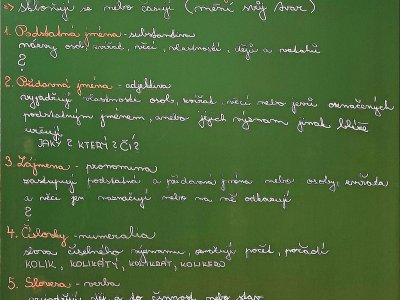 a) skloňují se nebo časují (mění svůj tvar)
1. Podstatná jména - substantiva
názvy osob, zvířat, věcí, vlastností, dějů a vztahů
?
2. Přídavná jména - adjektiva
vyjadřují vlastnosti osob, zvířat, věcí nebo jevů označených
podstatným jménem, anebo jejich význam jinak blíže
určují
JAKÝ? KTERÝ? ČÍ?
3. Zájmena - pronomina
zastupují podstatná a přídavná jména nebo osoby, zvířata
a věci jen naznačují nebo na ně odkazují
?
4. Číslovky - numeralia
slova číselného významu, označují počet, pořadí
KOLIK, KOLIKÁTÝ, KOLIKRÁT, KOLIKERO
5. Slovesa - verba
vyjadřují děj, a to činnost nebo stav